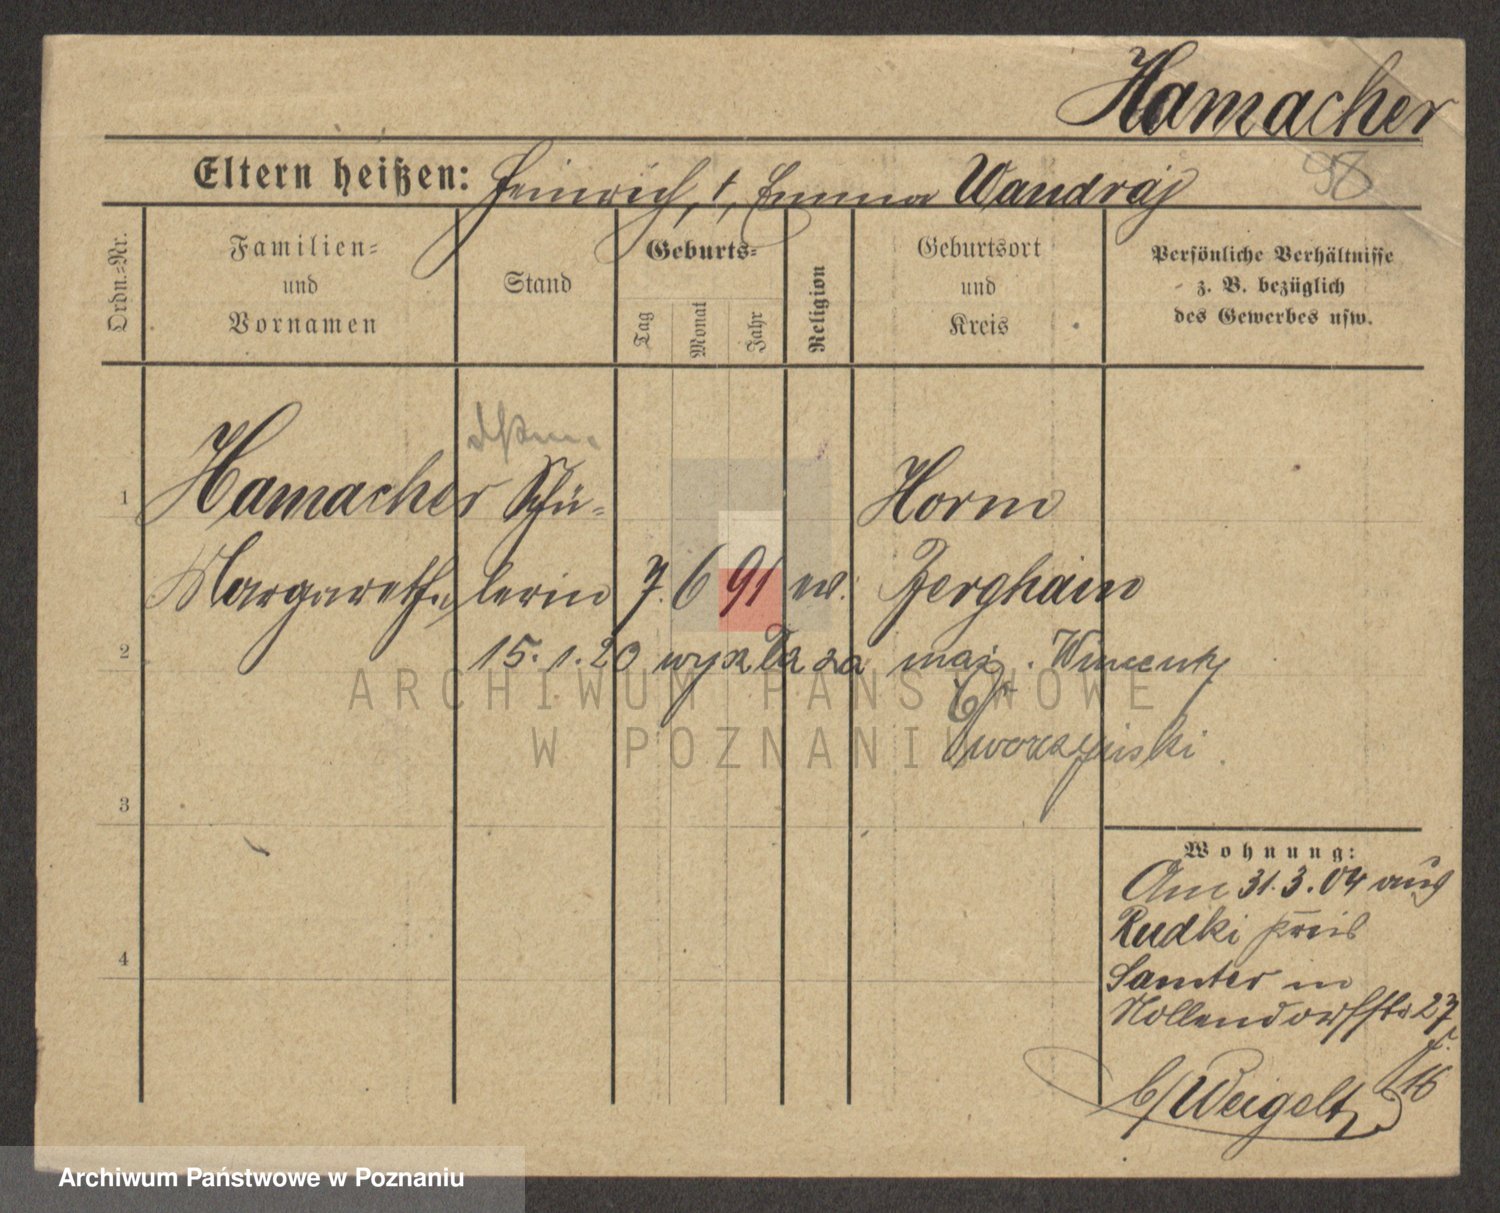 Hamacher
98
Eltern heißen: Heinrich, †, Emma Wandraj
Ordn.=Nr.
Familien=
und
Vornamen
Stand
Geburts=
Tag
Monat
Jahr
Religion
Geburtsort
und
Kreis
Persönliche Verhältnisse
z. B. bezüglich
des Gewerbes usw.
1
Hamacher Schü=
Horno
Margarethe lerin 7. 6 91 ev. Zerghain
2
15. 1. 20 wykr. za mąż. Wincenty
Tworszyński
3
4
Wohnung:
Am 31.3.04 aus
Rudki Kreis
Samter in
Nollendorffstr 27
b/Weigelt
ARCHIWUM PAŃSTWOWE
W POZNANIU
Archiwum Państwowe w Poznaniu